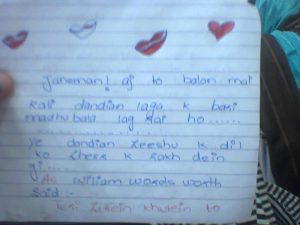 Janeman! aj to balon mai
kali dandian laga k bari
madhubala lag rai ho......
..................
ye dandian zeeshu k dil
ko cheer k rakh dein
gi....
As william words worth
said:-
Teri zulfein khulein to